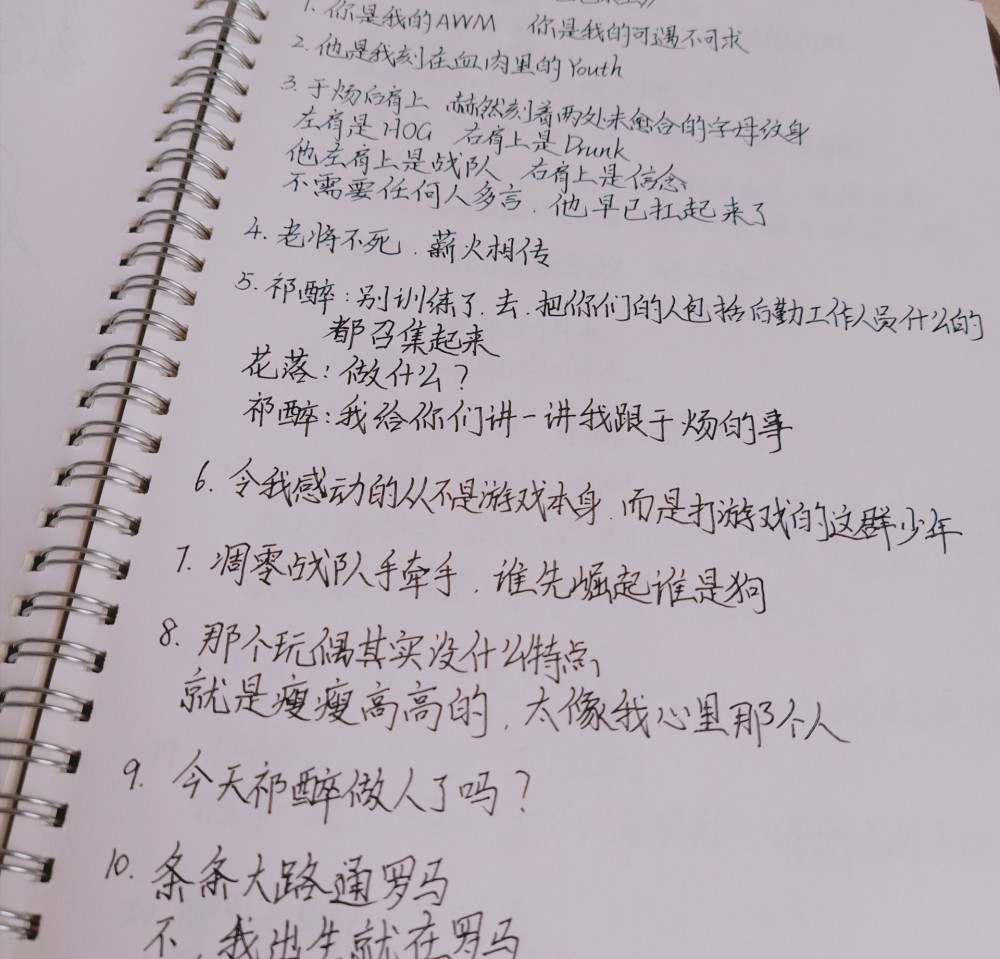 1. 你是我的AWM 你是我的可遇不可求
2. 他是我刻在血肉里的Youth
3. 于炀后肩上 赫然刻着两处未愈合的字母纹身
左肩是HOG 右肩上是Drunk
他左肩上是战队 右肩上是信念
不需要任何人多言.他早已扛起来了
4. 老将不死.薪火相传
5. 祁醉:别训练了.去.把你们的人包括后勤工作人员什么的
都召集起来
花落:做什么?
祁醉:我给你们讲一讲我跟于炀的事
6. 令我感动的从不是游戏本身.而是打游戏的这群少年
7. 凋零战队手牵手.谁先崛起谁是狗
8. 那个玩偶其实没什么特点,
就是瘦瘦高高的.太像我心里那个人
9. 今天祁醉做人了吗?
10. 条条大路通罗马
不.我出生就在罗马